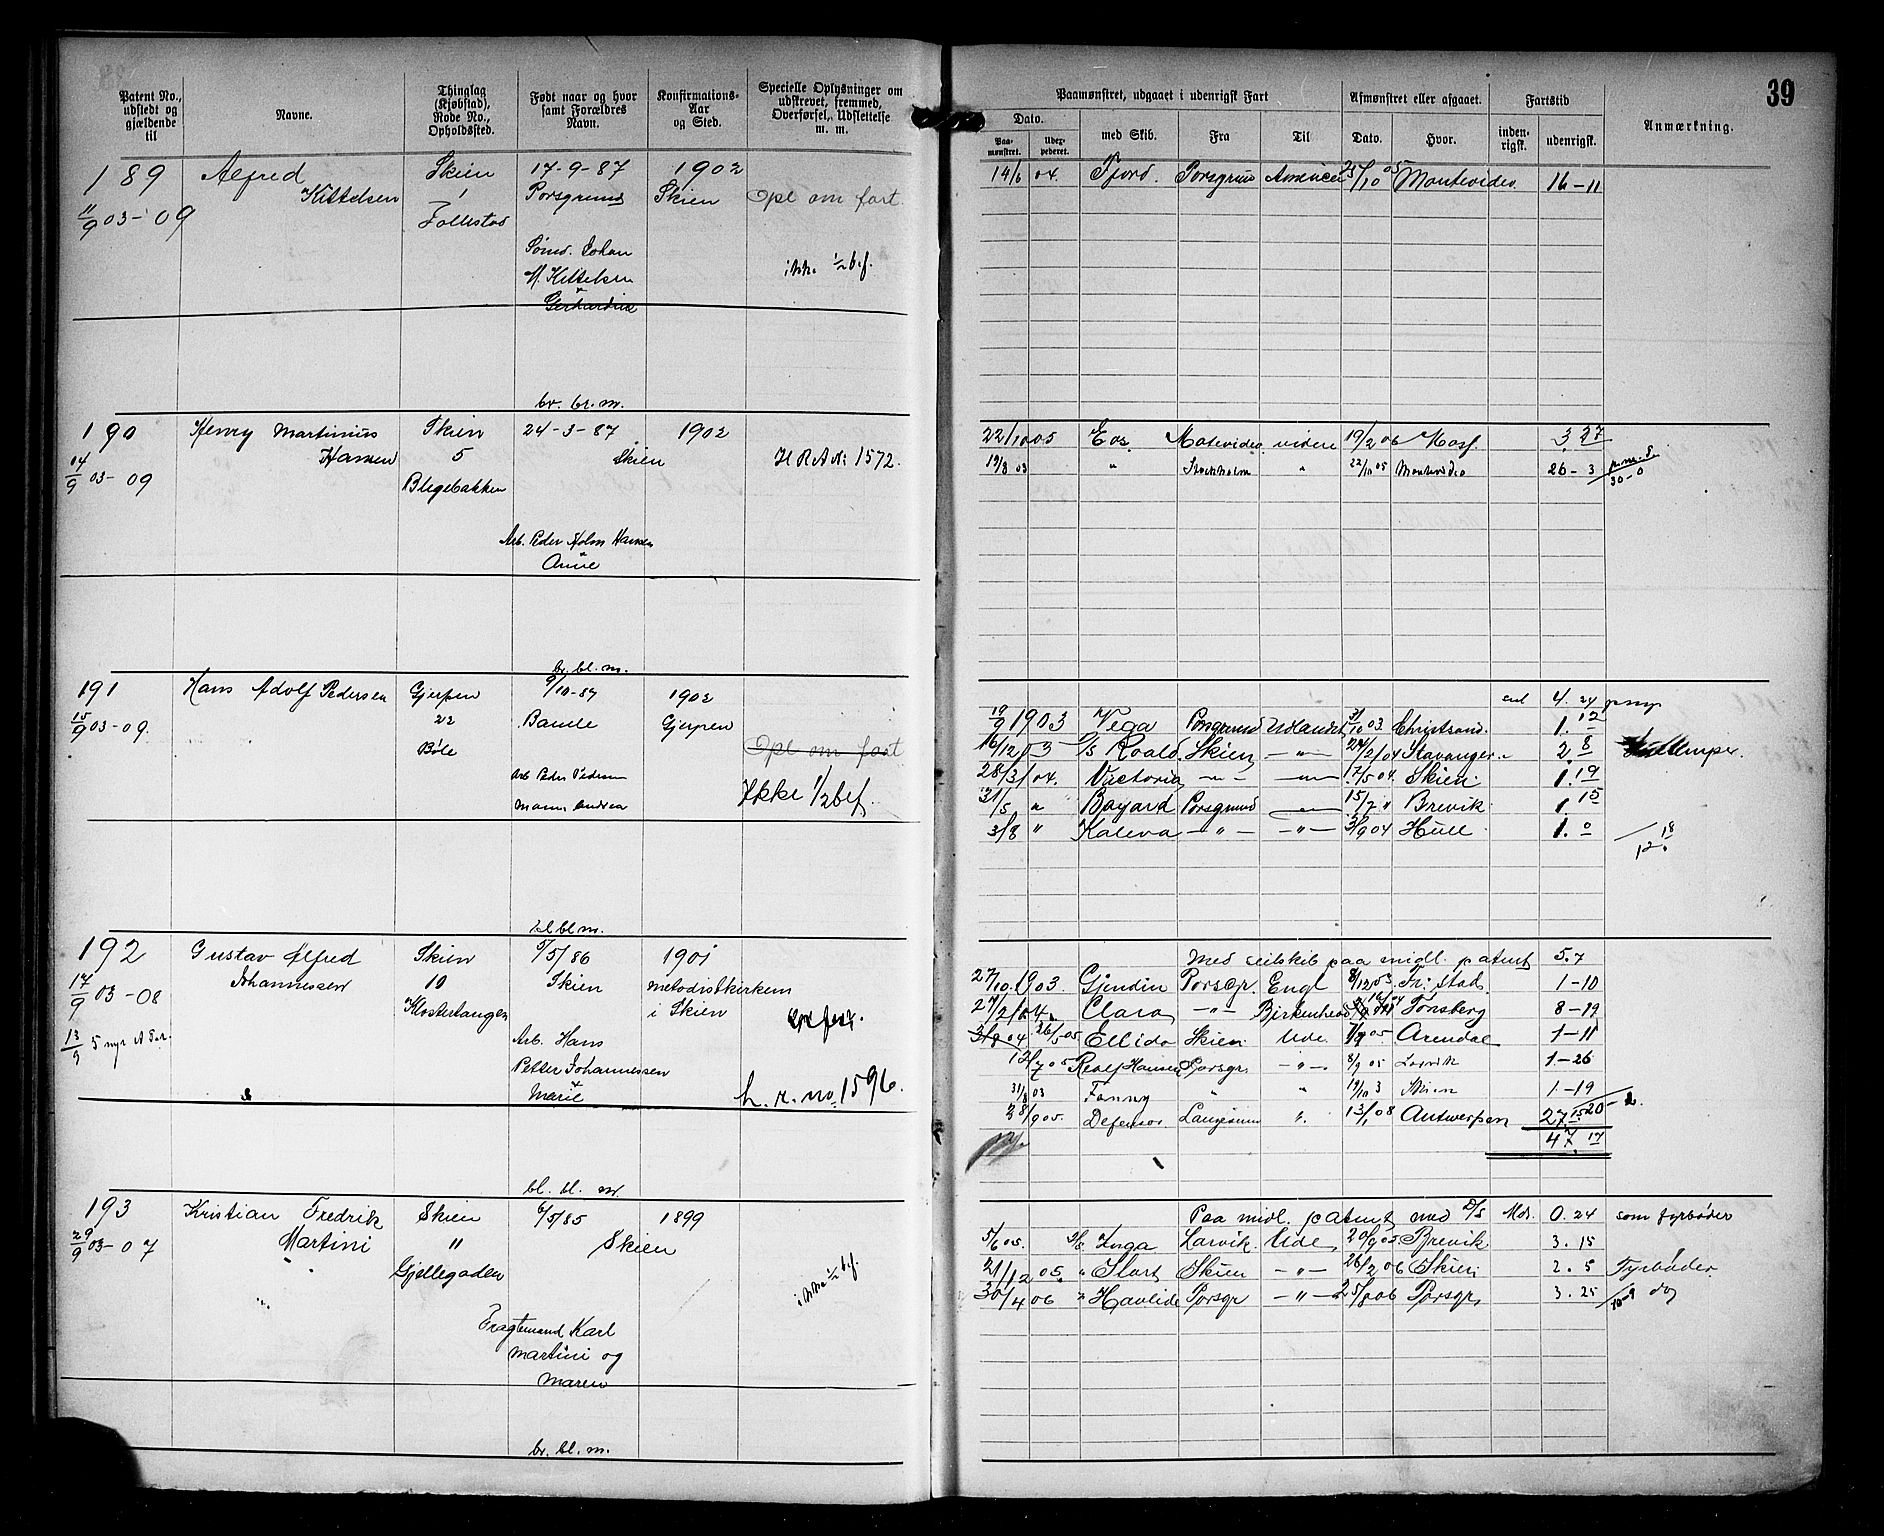 39
Patent No., udstedt og gjældende til
Navne.
Thinglag (Kjøbstad), Rode No., Opholdssted.
Født naar og hvor samt Forældres Navn.
Konfirmations-Aar og Sted.
Specielle Oplysninger om udskrevet, fremmed, Overførsel, Udslettelse m. m.
Paamønstret, udgaaet i udenrigsk Fart
Afmønstret eller afgaaet.
Fartstid
Anmærkning.
Dato.
Paa-mønstret.
med Skib.
Fra
Til
Dato.
Hvor.
inden-rigsk.
udenrigsk.
189 Alfred Skien 17-9-87 1902
Kittelsen 1 Porsgrund Skien Opl om fart.
11/9 03-09 Follestad
Sømd. Johan
M. Kittelsen
ikke 1/2 bef.
Gerhardine
br. br. m.
14/6 04. Fjord. Porsgrund 25/10 05 Montevideo 16-11
190 Henry Martinius Skien 24-3-87 1902
Hansen 5 Skien H R A No 1572.
04/9 03-09 Blegebakken
Arb. Peder Holm Hansen
Anne
br. bl. m.
22/10 05 Eos Motevideo videre 19/2 06 3.27
19/8 03 " Stockholm " 22/10 05 Montevideo 26-3
30-0
191 Hans Adolf Pedersen Gjerpen 9/10-87 1902
15/9 03-09. 22 Bamle Gjerpen
Bøle Opl om fart
Arb. Peder Pedersen
Maren Andrea Ikke 1/2 bef.
bl bl m.
4. 24
19/9 1903 Vega Porsgrund Udlandet 31/10 03. Christsand. 1. 12
16/12 03 D/S Roald. Skien -"- 24/2 04 Stavanger 2. 8
28/3 04. Victoria -"- -"- 17/5 04. Skien. 1. 19
31/5 " Bayard Porsgrund -"- 15/7 " Brevik. 1. 15
3/8 " Kaleva -"- -"- 3/9 04 Hull. 1. 0
18
12.
192 Gustav Alfred Skien 5/5/86 1901
Johannessen 10 Skien metodistkirken
17/9 03-08 Klosterhaugen i Skien
13/9 5 nyt A Par. Arb. Hans
Petter Johannessen
Marie h. r. no. 1596.
bl. bl. m.
Med seilskib paa midl. patent 5.7
27/10. 1903. Gjendin Porsgr. Engl 8/12 03 Fr: stad. 1-10
27/2 04. Clara -"- Birkenhead Tønsberg 8-29
3/8 04 26/5 05 Ellida Skien Udl. 7/7 05 Arendal 1-11
12/7 05 Rolf Hansen Porsgr. -"- 8/9 05 Larvik 1-26
31/8 03 Fanny " " 19/10 3 Skien 1-19
28/9 05. Defensor Langesund ". 13/1 08 Antwerpen 27.15
47. 17
193 Kristian Fredrik Skien 6/5/85 1899
Martini " Skien
29/9 03-07 Gjellegaden
ikke 1/2 bef.
Fragtemand Karl
Martini og
Maren
br. bl. m.
Paa midl. patent med D/S 0.24 som fyrbøder
5/6 05. D/S Inga Larvik Udl. 20/9 05 Brevik 3. 15
21/12 05. " Start Skien -"- 26/2 06 Skien 2. 5 Fyrbøder
30/4 06 " Havlide Porsgr -"- 25/8 06 Porsgr. 3. 25
10-9